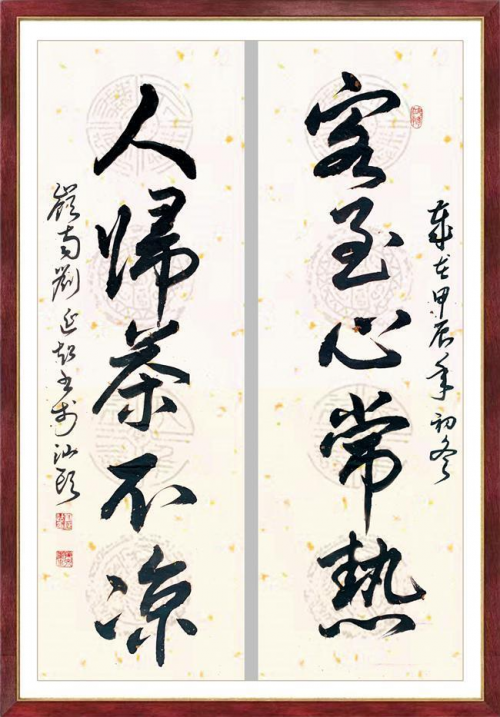 歲在甲辰年初冬
客至心常熱
人歸茶不凉
嶺南劉延超書於汕頭